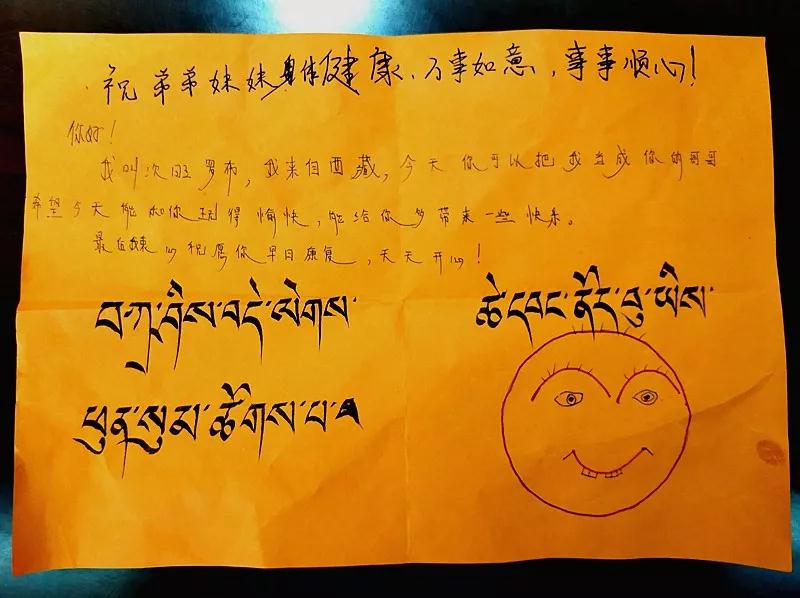 祝弟弟妹妹身体健康、万事如意,事事顺心!
你好!
我叫次旺罗布,我来自西藏,今天你可以把我当成你的哥哥
希望今天能和你玩得愉快,能给你多带来一些快乐。
最后我衷心祝愿你早日康复,天天开心!
བ་ཀྲ་ཤིས་བདེ་ལེགས་
ཕུན་སུམ་ཚོགས་པ་
ཚེ་དབང་ནོར་བུ་ཡིས་